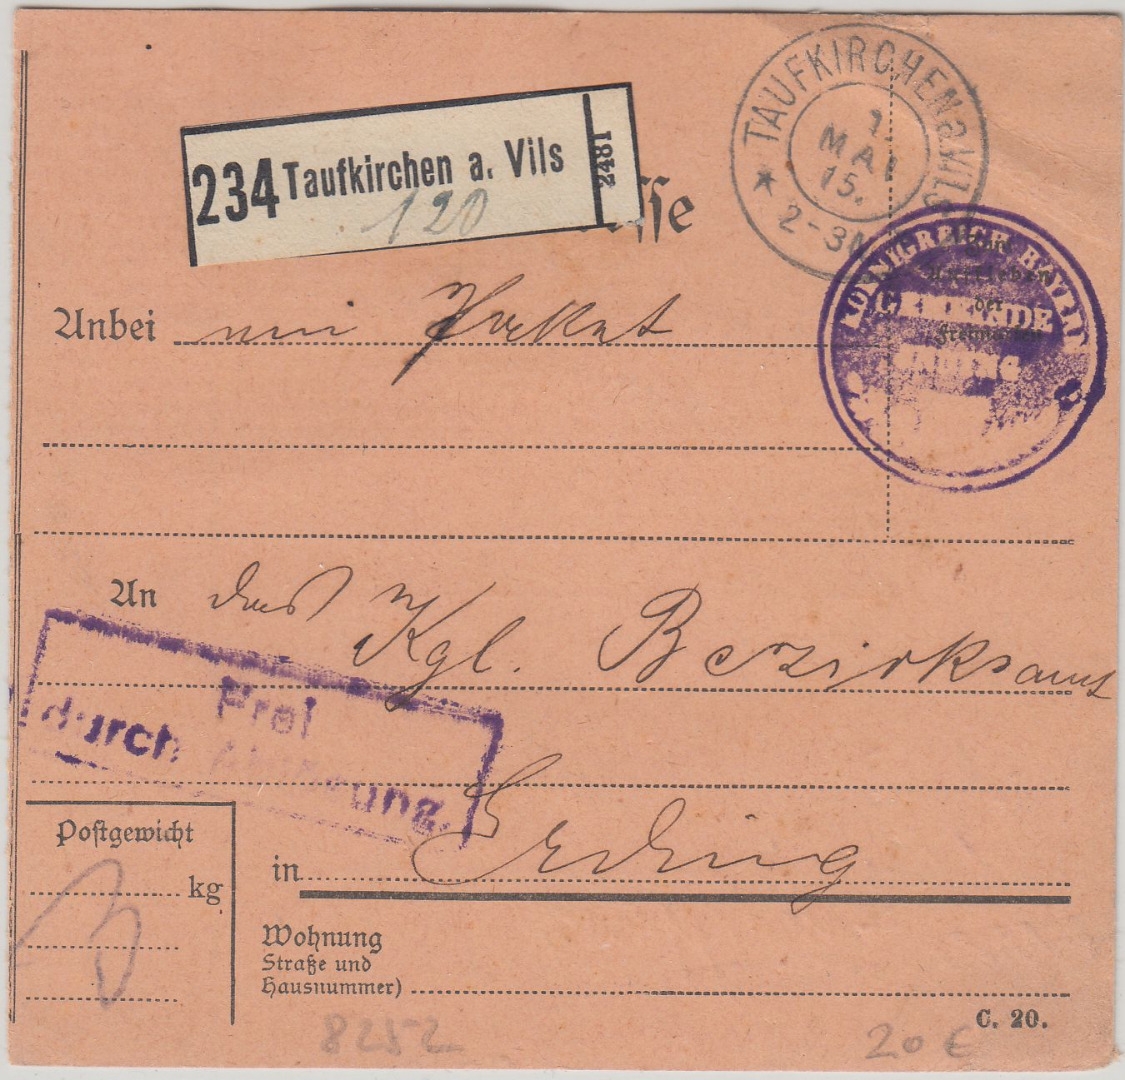 TAUFKIRCHEN a. VILS
1.
MAI
15.
2-3N
234 Taufkirchen a. Vils 2481
120
sse
KOENIGREICH BAYERN
GEMEINDE
der
Freimarken
Anbei ein Paket
An das Kgl. Bezirksamt
Frei
durch Ablösung.
Postgewicht
in Erding
kg
3
Wohnung
Straße und
Hausnummer)
C. 20.
8252
20 €